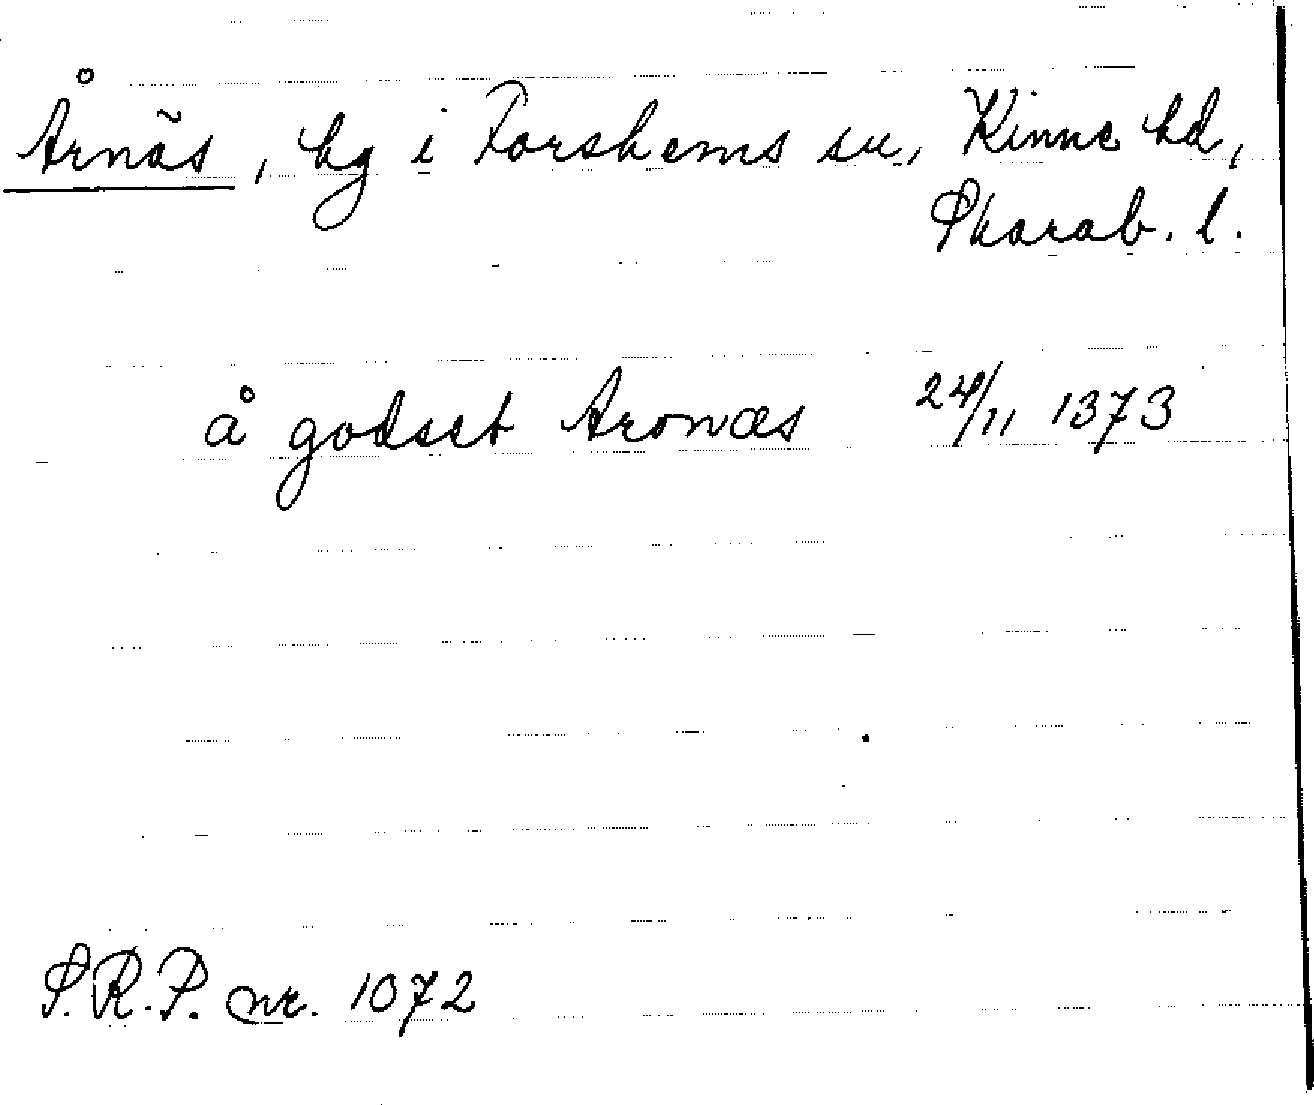 Årnäs, hg i Forshems sn, Kinne hd,
Skarab. l.
å godset Aronæs 24/11 1373
S.R.P. nr. 1072